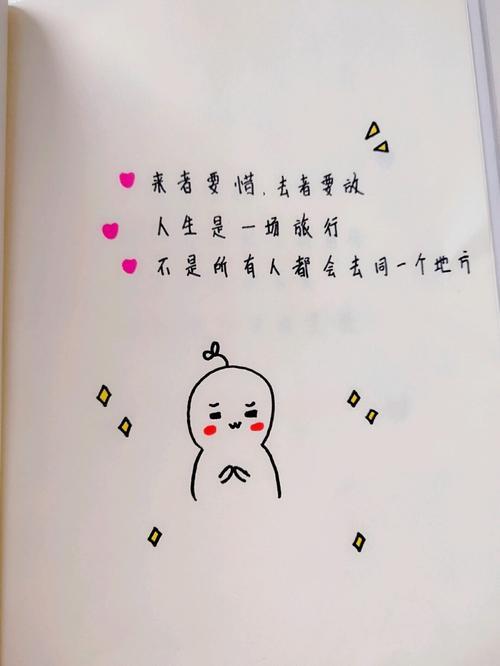 来者要惜,去者要放
人生是一场旅行
不是所有人都会去同一个地方